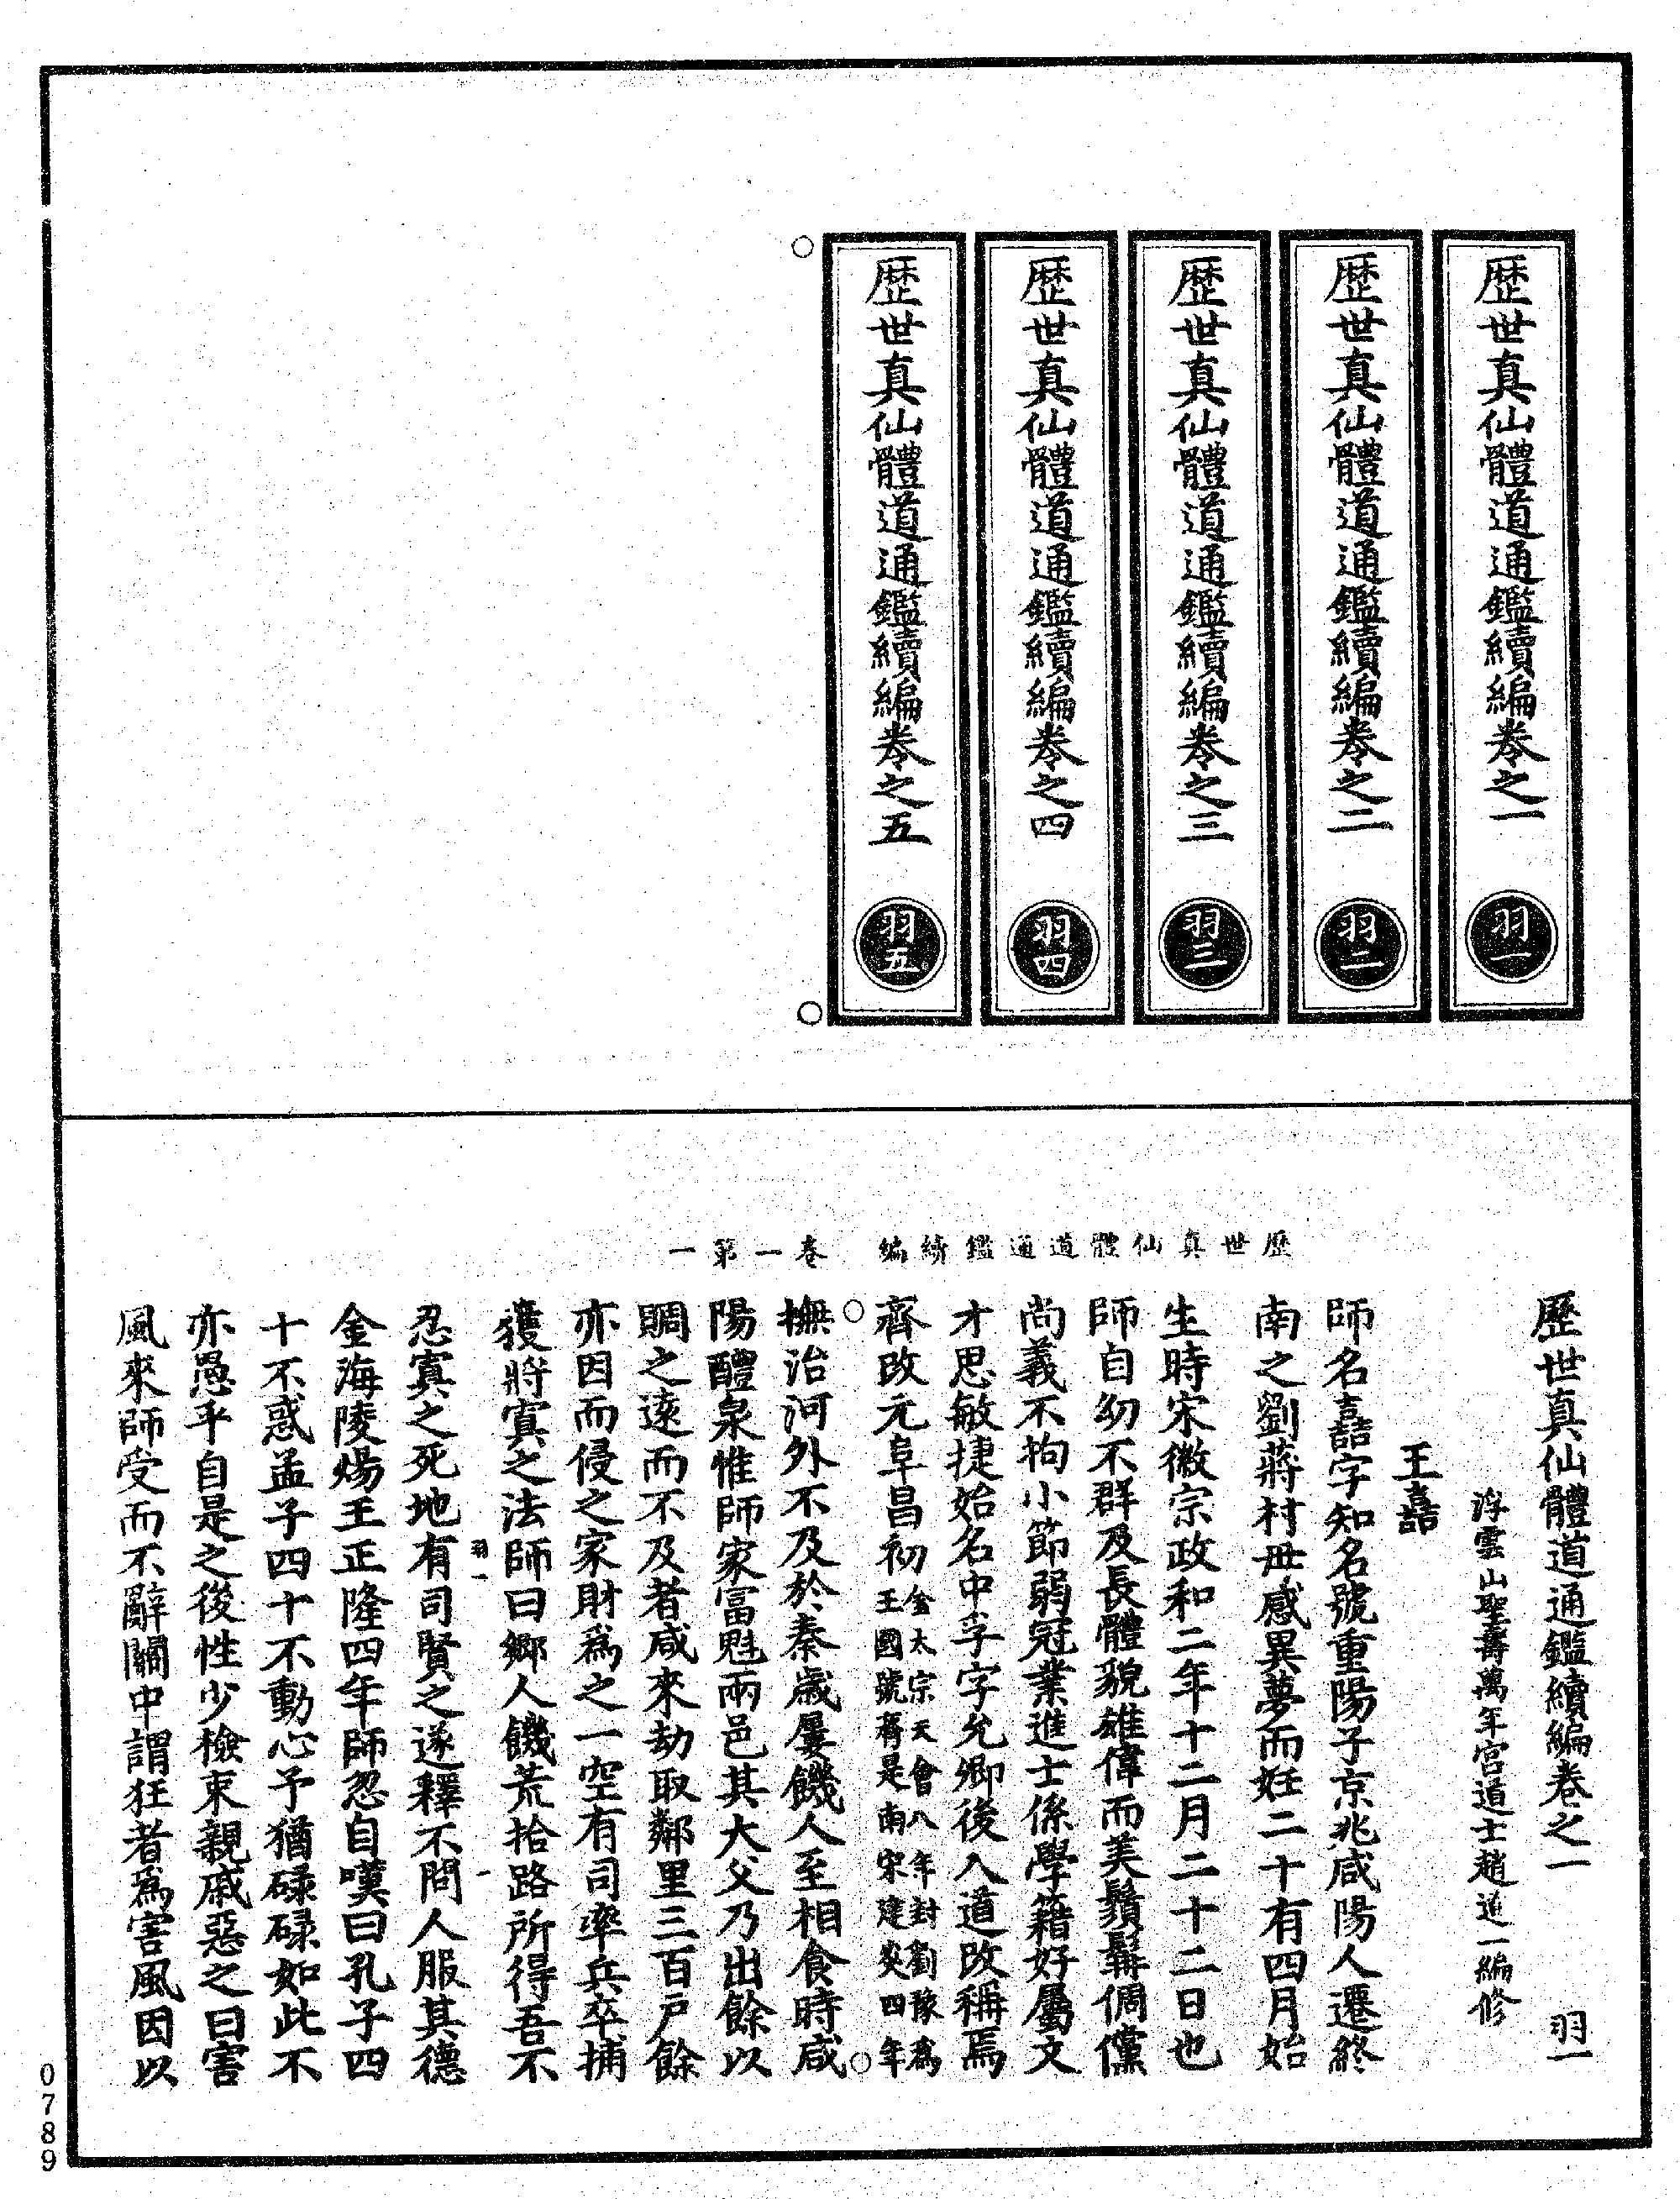 歷世真仙體道通鑑續編卷之一
羽一
歷世真仙體道通鑑續編卷之二
羽二
歷世真仙體道通鑑續編卷之三
羽三
歷世真仙體道通鑑續編卷之四
羽四
歷世真仙體道通鑑續編卷之五
羽五
歷世真仙體道通鑑續編　卷一第一
歷世真仙體道通鑑續編卷之一　羽一
浮雲山聖壽萬年宮道士趙道一編修
王嚞
師名嚞字知名號重陽子京兆咸陽人遷終
南之劉蔣村母感異夢而妊二十有四月始
生時宋徽宗政和二年十二月二十二日也
師自幼不群及長體貌雄偉而美鬚髯倜儻
尚義不拘小節弱冠業進士係學籍好屬文
才思敏捷始名中孚字允卿後入道改稱焉
齊改元阜昌初金太宗天會八年封劉豫為
王國號齊是南宋建炎四年
撫治河外不及於秦歲屢饑人至相食時咸
陽醴泉惟師家富魁兩邑其大父乃出餘以
賙之遠而不及者咸來劫取鄰里三百戶餘
亦因而侵之家財為之一空有司率兵卒捕
獲將寘之法師曰鄉人饑荒拾路所得吾不
羽一　一
忍寘之死地有司賢之遂釋不問人服其德
金海陵煬王正隆四年師忽自嘆曰孔子四
十不惑孟子四十不動心予猶碌碌如此不
亦愚乎自是之後性少檢束親戚惡之曰害
風來師受而不辭關中謂狂者為害風因以
0789